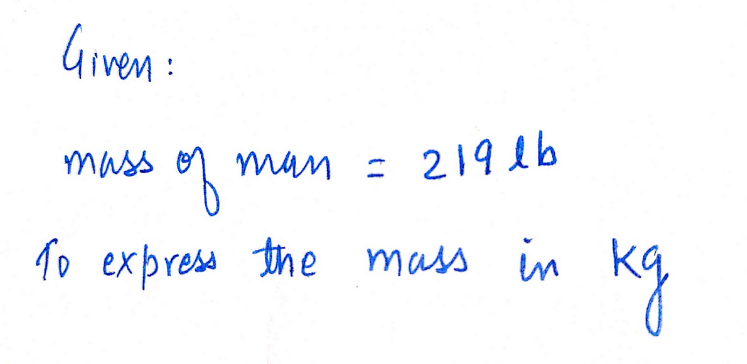 Given:
mass of man = 219 lb
To express the mass in kg